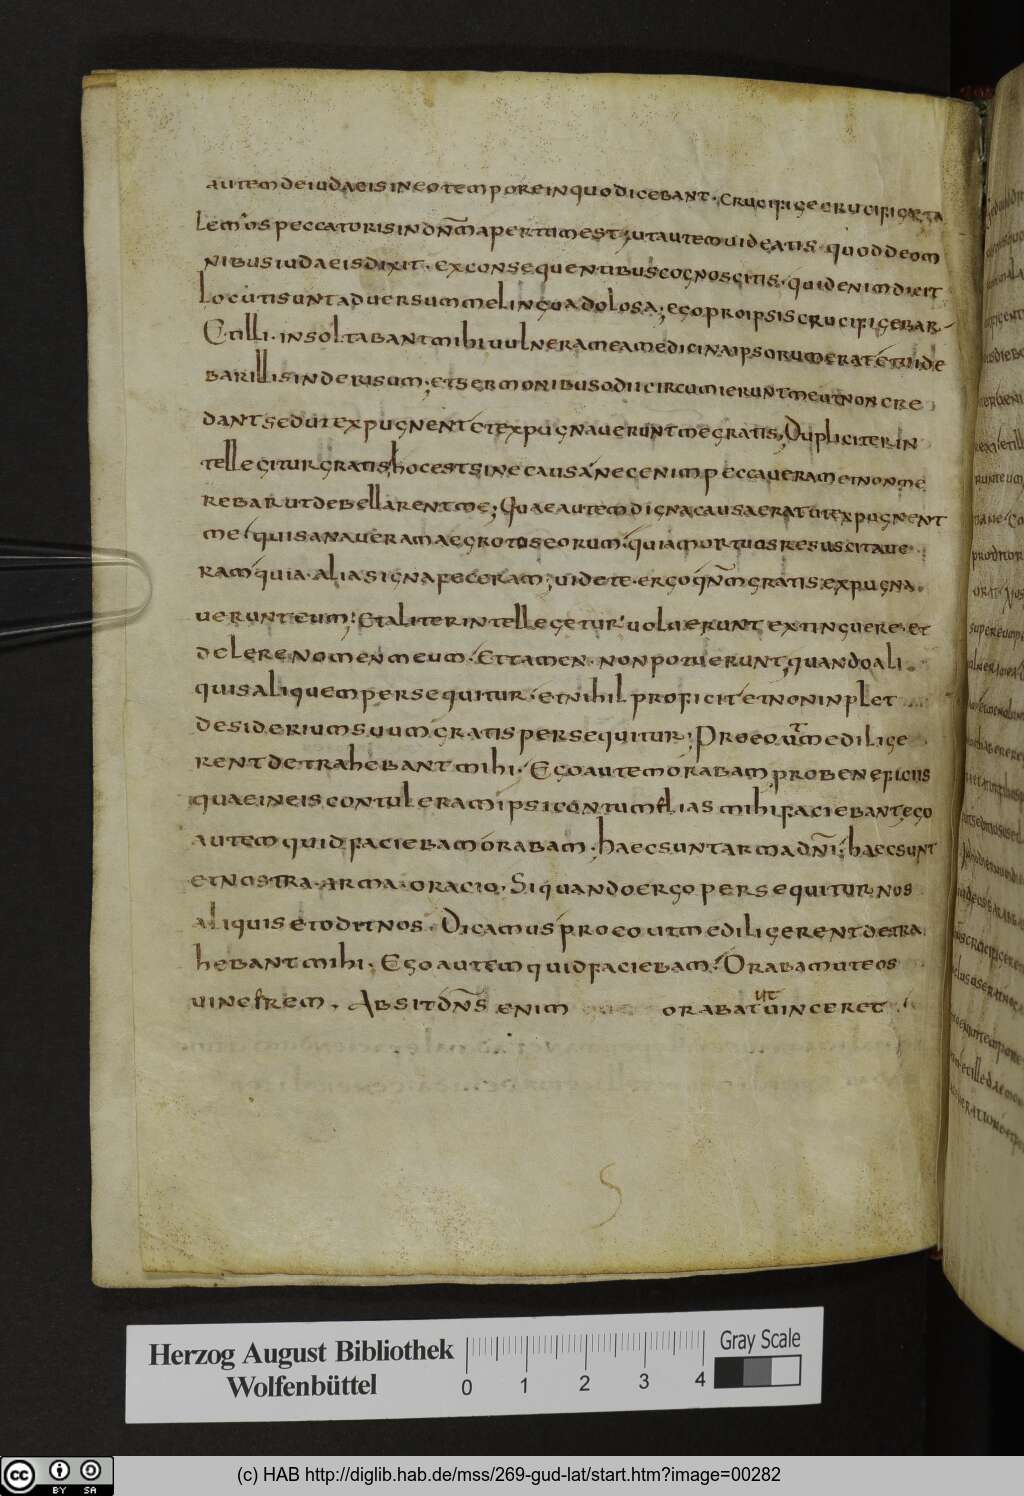 autem de iudaeis in eo tempore in quo dicebant · crucifige crucifige ta
lem os peccatoris in dn̄m apertum est; ut autem uideatis quod de om
nibus iudaeis dixit · ex consequentibus cognoscitis · quid enim dixit
Locuti sunt aduersum me lingua dolosa; ego pro ipsis crucifigebar ·
Et illi · insoltabant mihi uulnera mea medicina ipsorum erat et ride
bar illis in derisum; et sermonibus odii circumierunt me ut non cre
dant sed ut expugnent et expugnauerunt me gratis; Dupliciter in
tellegitur gratis hoc est sine causa nec enim peccaueram et non me
rebar ut debellarent me; Quae autem digna causa erat ut expugnent
me quia sanaueram aegrotos eorum · quia mortuos resuscitaue
ram quia · alia signa feceram; uidete · ergo qn̄m gratis expugna
uerunt eum; Et aliter intellegetur uoluerunt extinguere · et
delere nomen meum · Et tamen · non potuerunt; quando ali
quis aliquem persequitur · et nihil proficit et non inplet
desiderium suum gratis persequitur; Pro eo ut me dilige
rent detrahebant mihi · Ego autem orabam pro beneficiis
quae in eis contuleram ipsi contumelias mihi faciebant ego
autem quid faciebam orabam · haec sunt arma dn̄i; haec sunt
et nostra · arma · oracio · Si quando ergo persequitur nos
aliquis et odit nos · Dicamus pro eo ut me diligerent detra
hebant mihi · Ego autem quid faciebam? Orabam ut eos
uincerem · Absit dn̄s enim orabat ut uinceret
Herzog August Bibliothek
Wolfenbüttel
0 1 2 3 4
Gray Scale
cc BY SA
(c) HAB http://diglib.hab.de/mss/269-gud-lat/start.htm?image=00282